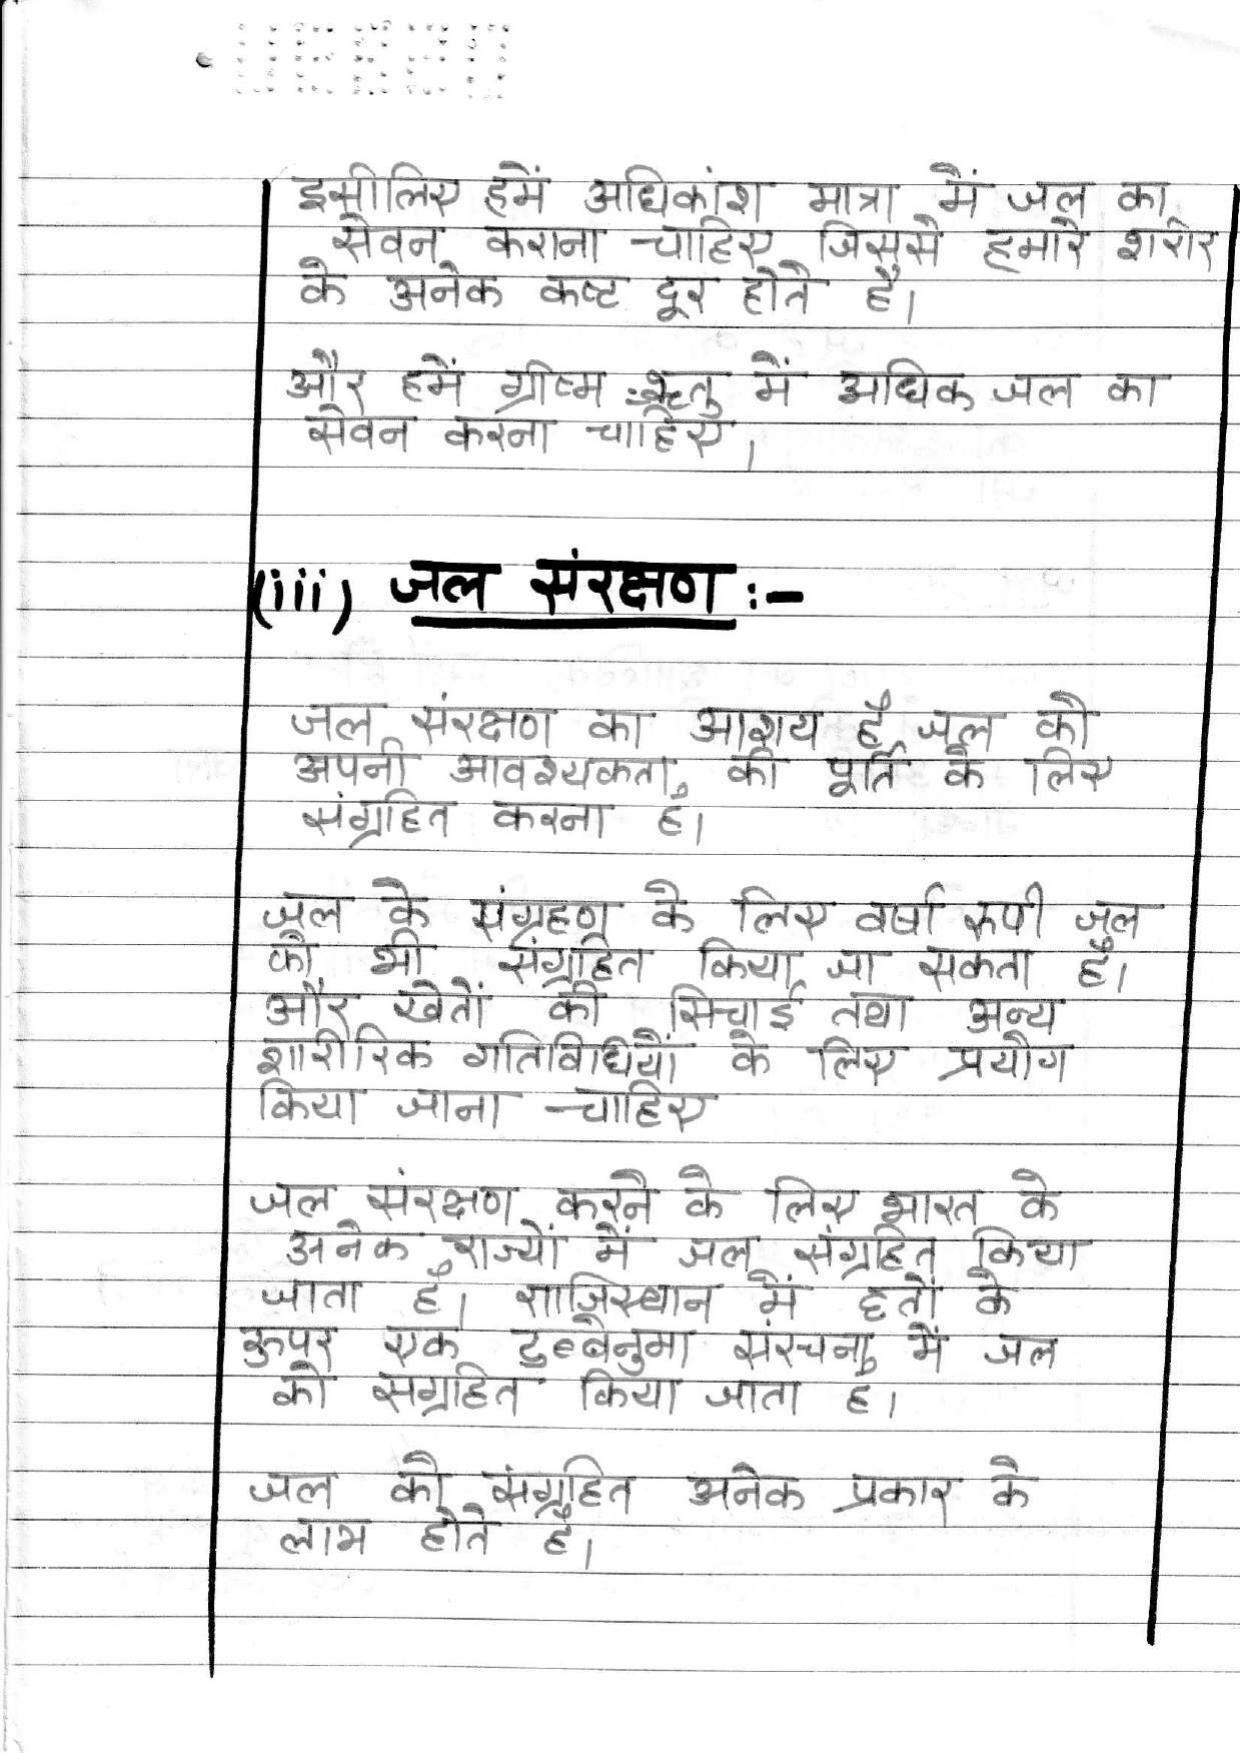 इसीलिए हमें अधिकांश मात्रा में जल का
सेवन कराना चाहिए जिससे हमारे शरीर
के अनेक कष्ट दूर होते है।
और हमें ग्रीष्म ऋतु में अधिक जल का
सेवन करना चाहिए।
(iii) जल संरक्षण :-
जल संरक्षण का आशय है जल को
अपनी आवश्यकता की पूर्ति के लिए
संग्रहित करना है।
जल के संग्रहण के लिए वर्षा रूपी जल
को भी संग्रहित किया जा सकता है।
और खेतों की सिचाई तथा अन्य
शारीरिक गतिविधियों के लिए प्रयोग
किया जाना चाहिए
जल संरक्षण करने के लिए भारत के
अनेक राज्यों में जल संग्रहित किया
जाता है। राजिस्थान में छतों के
ऊपर एक टुब्बेनुमा संरचना में जल
को संग्रहित किया जाता है।
जल को संग्रहित अनेक प्रकार के
लाभ होते है।